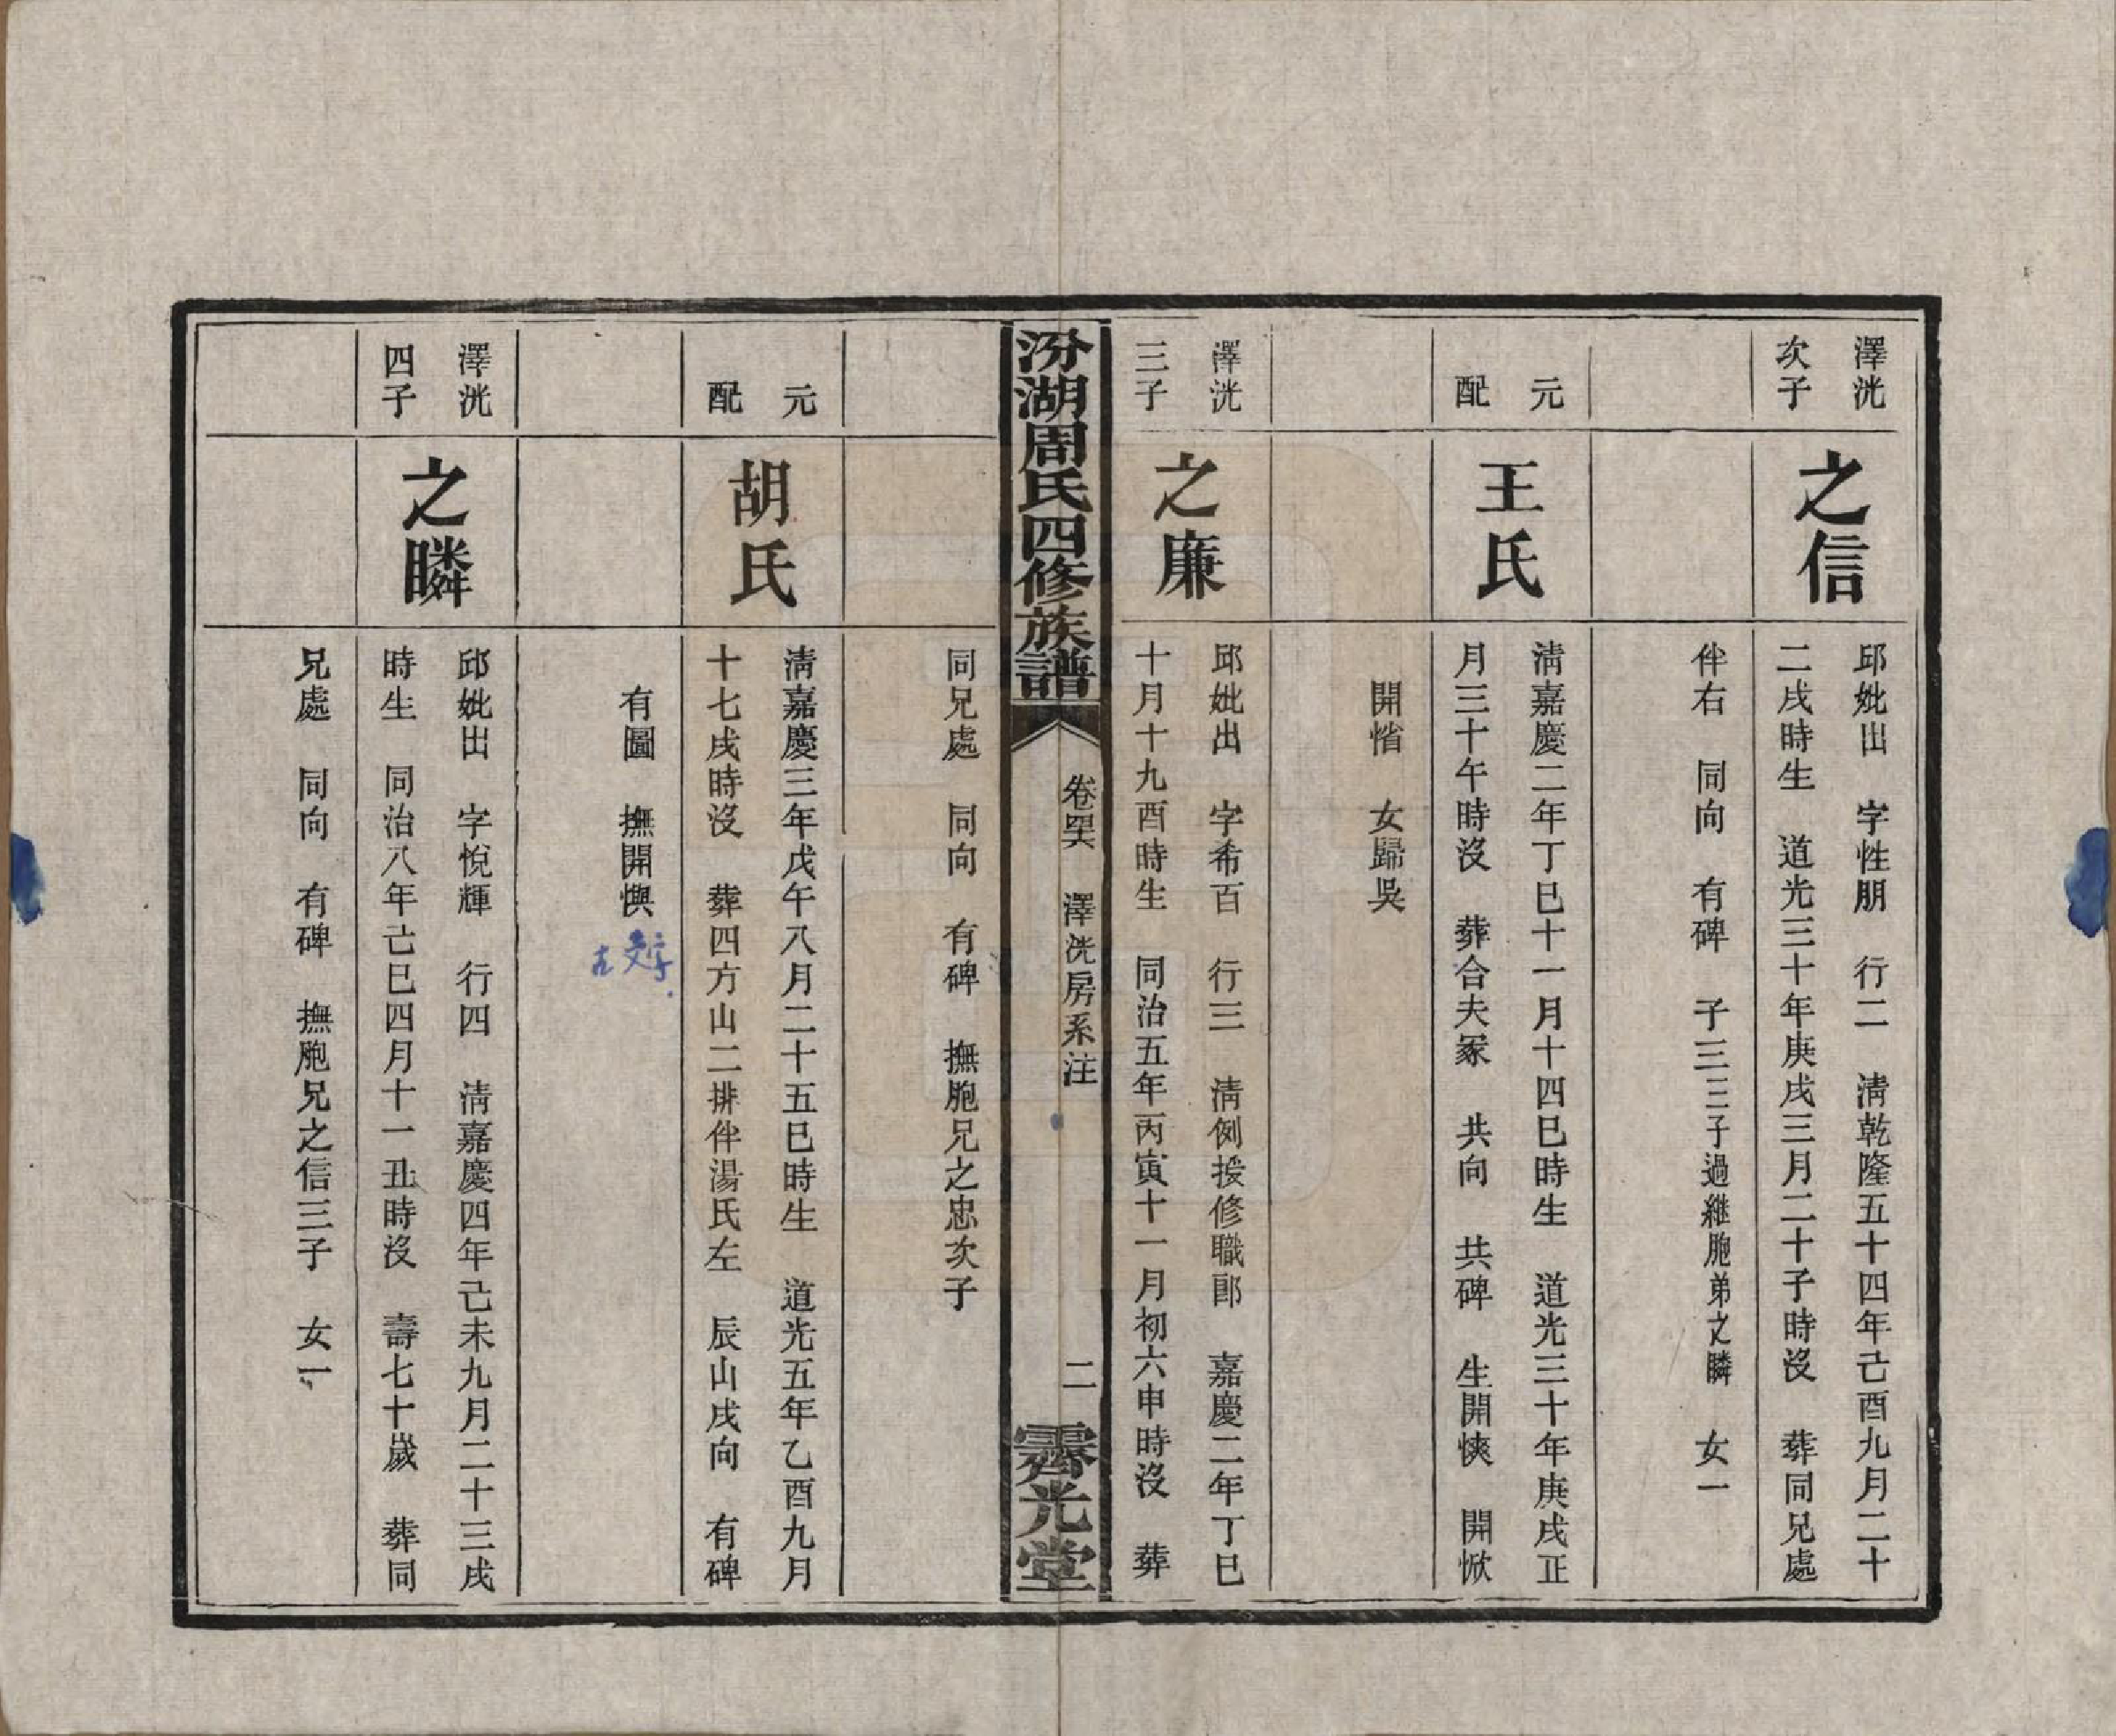 澤洸
次子
之信
邱妣出　字性朋　行二　清乾隆五十四年己酉九月二十
二戌時生　道光三十年庚戌三月二十子時沒　葬同兄處
伴右　同向　有碑　子三三子過繼胞弟之瞵　女一
元
配
王氏
清嘉慶二年丁巳十一月十四巳時生　道光三十年庚戌正
月三十午時沒　葬合夫冢　共向　共碑　生開悏　開惞
開惰　女歸吳
澤洸
三子
之廉
邱妣出　字希百　行三　清例授修職郎　嘉慶二年丁巳
十月十九酉時生　同治五年丙寅十一月初六申時沒　葬
同兄處　同向　有碑　撫胞兄之忠次子
汾湖周氏四修族譜
卷四六　澤洸房系注
二
霽光堂
元
配
胡氏
清嘉慶三年戊午八月二十五巳時生　道光五年乙酉九月
十七戌時沒　葬四方山二排伴湯氏左　辰山戌向　有碑
有圖　撫開懊
澤洸
四子
之瞵
邱妣出　字悅輝　行四　清嘉慶四年己未九月二十三戌
時生　同治八年己巳四月十一丑時沒　壽七十歲　葬同
兄處　同向　有碑　撫胞兄之信三子　女一